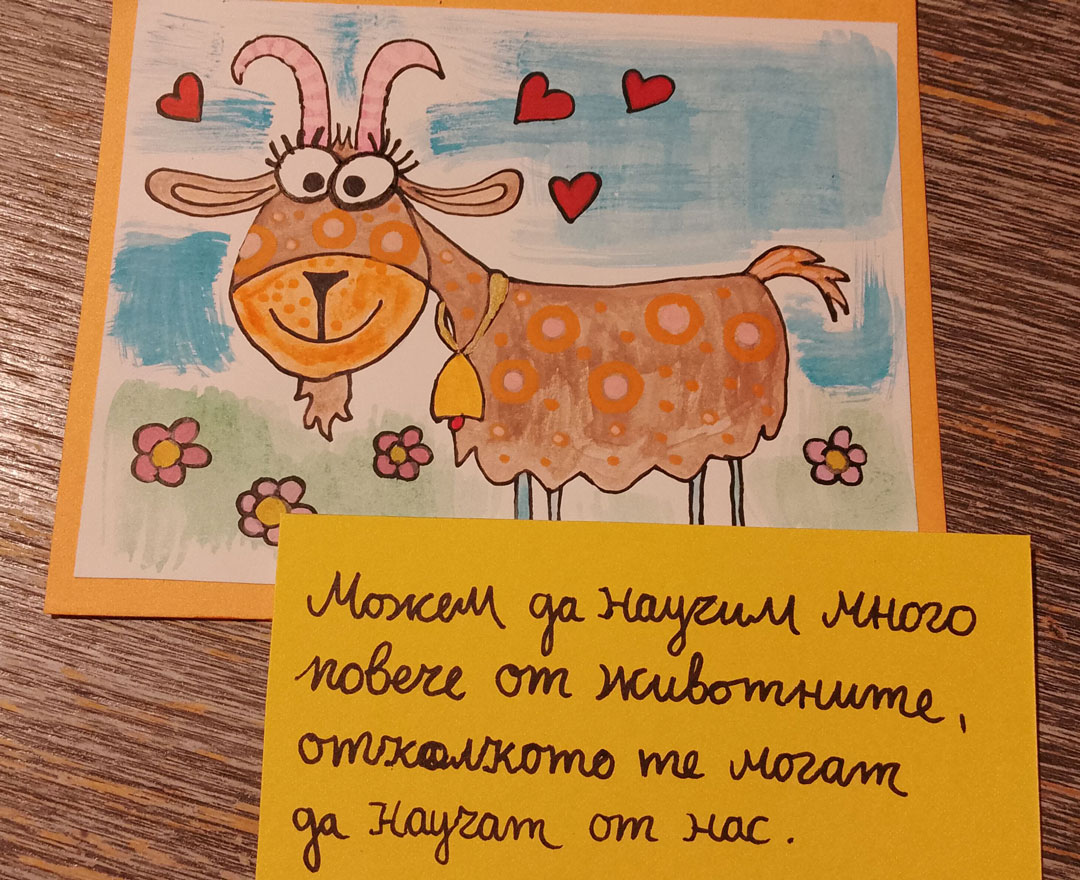 Можем да научим много
повече от животните,
отколкото те могат
да научат от нас.